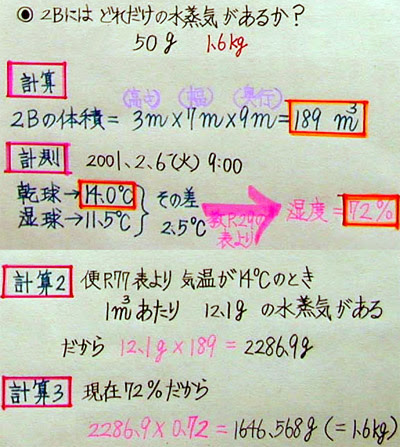 ◉ 2Bには どれだけの水蒸気があるか?
50g 1.6kg
計算
(高さ) (幅) (奥行)
2Bの体積 = 3m×7m×9m = 189 m³
計測 2001.2.6(火) 9:00
乾球→14.0℃
湿球→11.5℃
その差
2.5℃
教P.290
表より
湿度 = 72%
計算2 便P.77表より 気温が14℃のとき
1m³あたり 12.1g の水蒸気がある
だから 12.1g×189 = 2286.9g
計算3 現在72%だから
2286.9×0.72 = 1646.568g (=1.6kg)